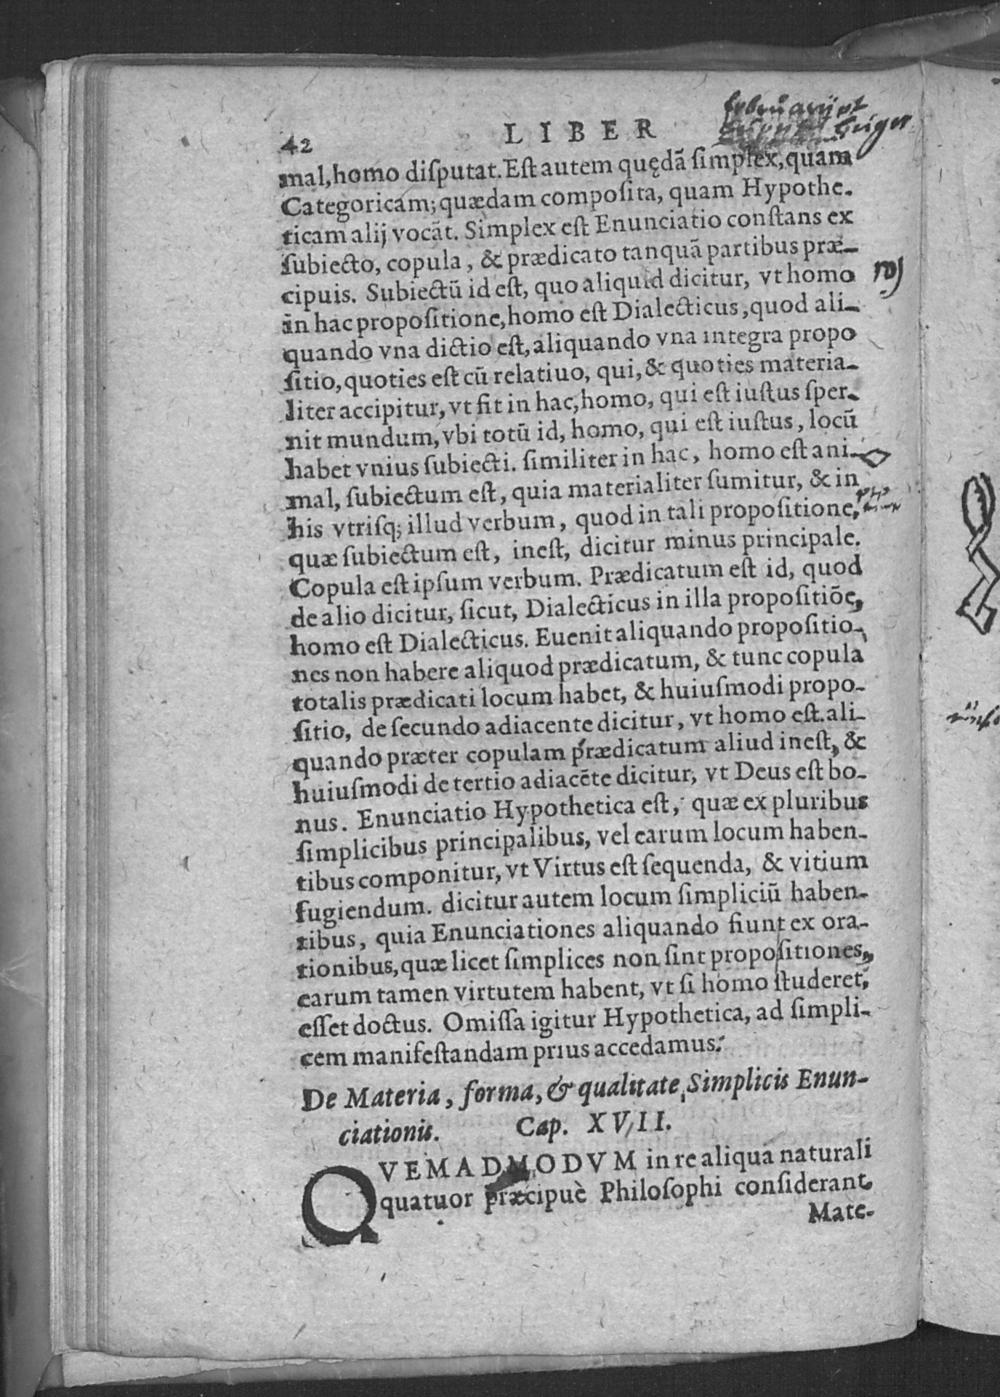 42 LIBER
mal, homo disputat. Est autem quędā simplex, quam
Categoricam; quædam composita, quam Hypothe-
ticam alij vocāt. Simplex est Enunciatio constans ex
subiecto, copula, & prædicato tanquā partibus præ-
cipuis. Subiectū id est, quo aliquid dicitur, vt homo
in hac propositione, homo est Dialecticus, quod ali-
quando vna dictio est, aliquando vna integra propo
sitio, quoties est cū relatiuo, qui, & quoties materia-
liter accipitur, vt fit in hac, homo, qui est iustus sper-
nit mundum, vbi totū id, homo, qui est iustus, locū
habet vnius subiecti. similiter in hac, homo est ani-
mal, subiectum est, quia materialiter sumitur, & in
his vtrisq; illud verbum, quod in tali propositione,
quæ subiectum est, inest, dicitur minus principale.
Copula est ipsum verbum. Prædicatum est id, quod
de alio dicitur, sicut, Dialecticus in illa propositiōe,
homo est Dialecticus. Euenit aliquando propositio-
nes non habere aliquod prædicatum, & tunc copula
totalis prædicati locum habet, & huiusmodi propo-
sitio, de secundo adiacente dicitur, vt homo est. ali-
quando præter copulam prædicatum aliud inest, &
huiusmodi de tertio adiacēte dicitur, vt Deus est bo-
nus. Enunciatio Hypothetica est, quæ ex pluribus
simplicibus principalibus, vel earum locum haben-
tibus componitur, vt Virtus est sequenda, & vitium
fugiendum. dicitur autem locum simpliciū haben-
tibus, quia Enunciationes aliquando fiunt ex ora-
tionibus, quæ licet simplices non sint propositiones,
earum tamen virtutem habent, vt si homo studeret,
esset doctus. Omissa igitur Hypothetica, ad simpli-
cem manifestandam prius accedamus.
De Materia, forma, & qualitate Simplicis Enun-
ciationis. Cap. XVII.
QVEMADMODVM in re aliqua naturali
quatuor præcipuè Philosophi considerant,
Mate-